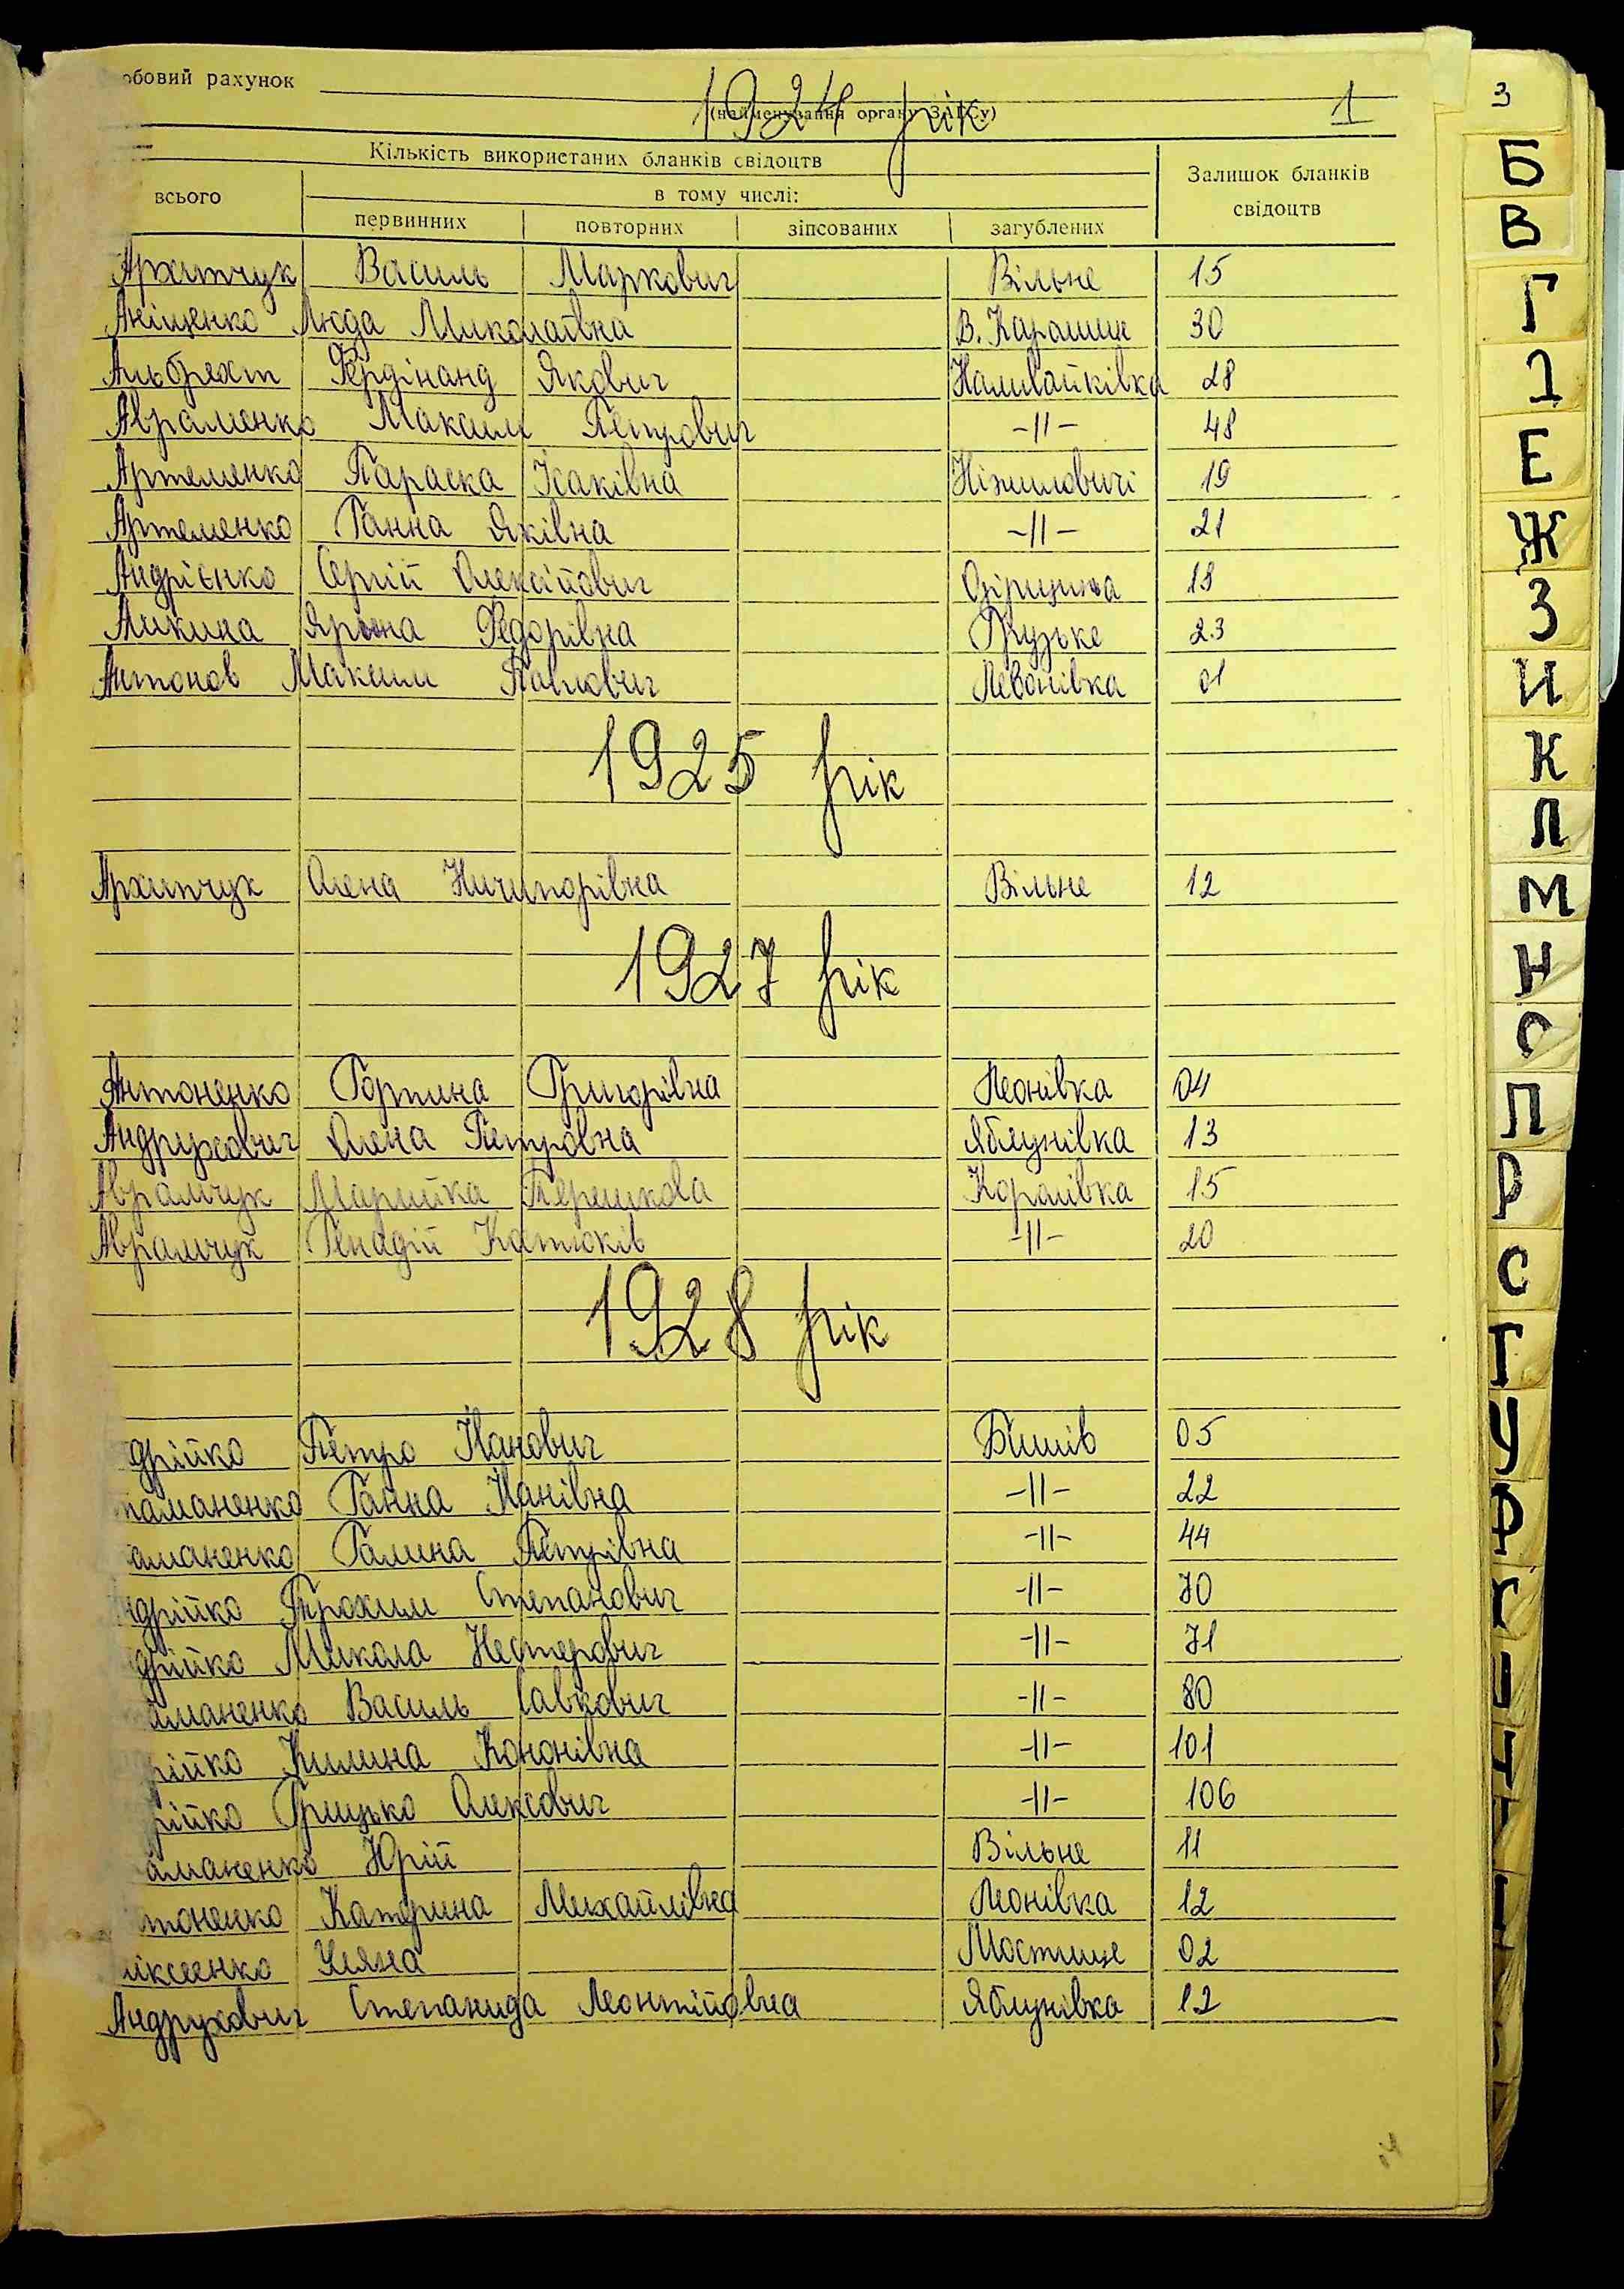 обовий рахунок
1924 рік
1
(найменування органу ЗАГСу)
Кількість використаних бланків свідоцтв
Залишок бланків свідоцтв
всього
в тому числі:
первинних повторних зіпсованих загублених
Архипчук Василь Маркович Вільне 15
Аніщенко Люда Миколаївна В. Карашин 30
Альбрехт Фердінанд Якович Наливайківка 28
Авраменко Максим Петрович -11- 48
Артеменко Параска Ісаківна Ніжиловичі 19
Артеменко Ганна Яківна -11- 21
Андрієнко Сергій Олексійович 18
Ярина Федорівна Грузьке 23
Антонов Максим Павлович Леонівка 01
1925 рік
Архипчук Олена Ничипорівна Вільне 12
1927 рік
Антоненко Горпина Григорівна Леонівка 04
Андрухович Олена Петровна Яблунівка 13
Аврамчук Марийка Королівка 15
Аврамчук Генадій -11- 20
1928 рік
дрійко Петро Іванович Бишів 05
таманенко Ганна Іванівна -11- 22
аманенко Галина Петрівна -11- 44
ндрійко Трохим Степанович -11- 70
дрійко Микола Нестерович -11- 71
аманенко Василь Савкович -11- 80
рійко Килина Кононівна -11- 101
рійко Грицько Олексович -11- 106
аманенко Юрій Вільне 11
тоненко Катерина Михайлівна Леонівка 12
Уляна Мостище 02
Андрухович Степанида Леонтійовна Яблунівка 12
З
Б
В
Г
Д
Е
Ж
З
И
К
Л
М
Н
О
П
Р
С
Т
У
Ф